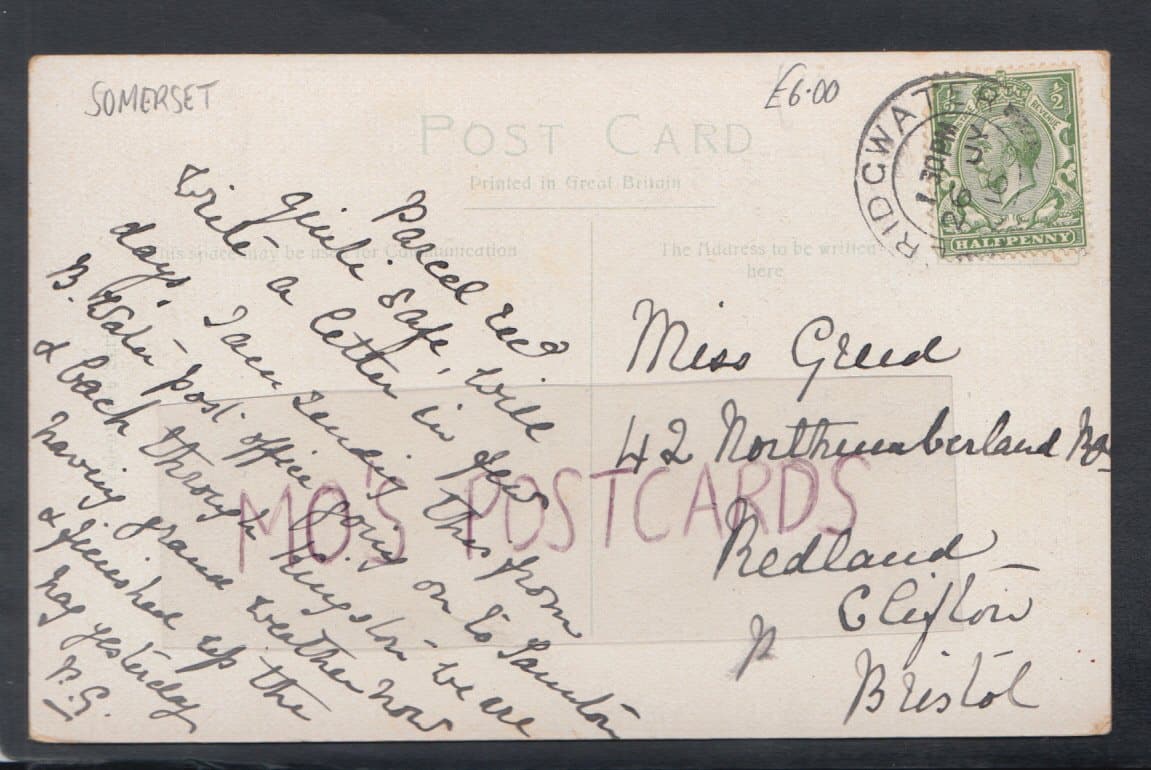 SOMERSET
£6.00
POST CARD
Printed in Great Britain
This space may be used for Communication
The Address to be written here
BRIDGWATER
1.30PM
26 JY
16
½ ½
HALFPENNY
Parcel recd
quite safe, will
write a letter in few
days. I am sending this from
B. Water post office going on to Taunton
& back through Kingston we are
having grand weather now
& finished up the
hay yesterday
P.G.
Miss Greed
42 Northumberland Rd
Redland
Clifton
Bristol
MO'S POSTCARDS